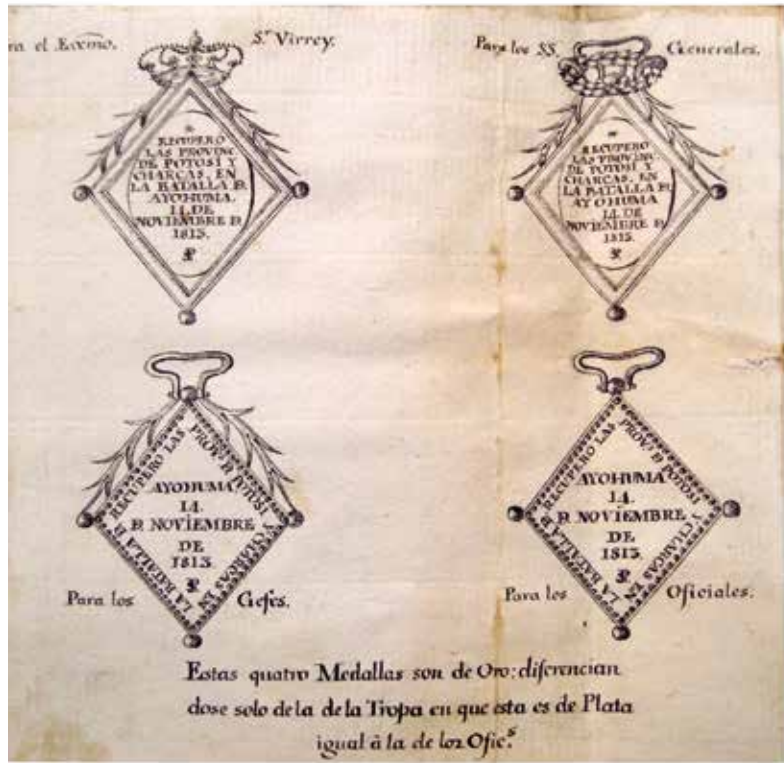 ra el Exmo.
Sr. Virrey.
RECUPERO
LAS PROVINC.
DE POTOSI Y
CHARCAS, EN
LA BATALLA D.
AYOHUMA.
14 DE
NOVIEMBRE D.
1813.
Para los SS.
Generales.
RECUPERO
LAS PROVINC.
DE POTOSI Y
CHARCAS, EN
LA BATALLA D.
AYOHUMA
14 DE
NOVIEMBRE D.
1813.
RECUPERO LAS PROVs. D. POTOSI Y CHARCAS EN LA BATALLA D.
AYOHUMA
14.
D. NOVIEMBRE
DE
1813.
Para los
Gefes.
RECUPERO LAS PROVs. D. POTOSI Y CHARCAS EN LA BATALLA D.
AYOHUMA
14.
D. NOVIEMBRE
DE
1813.
Para los
Oficiales.
Estas quatro Medallas son de Oro: diferencian
dose solo de la de la Tropa en que esta es de Plata
igual â la de los Ofics.